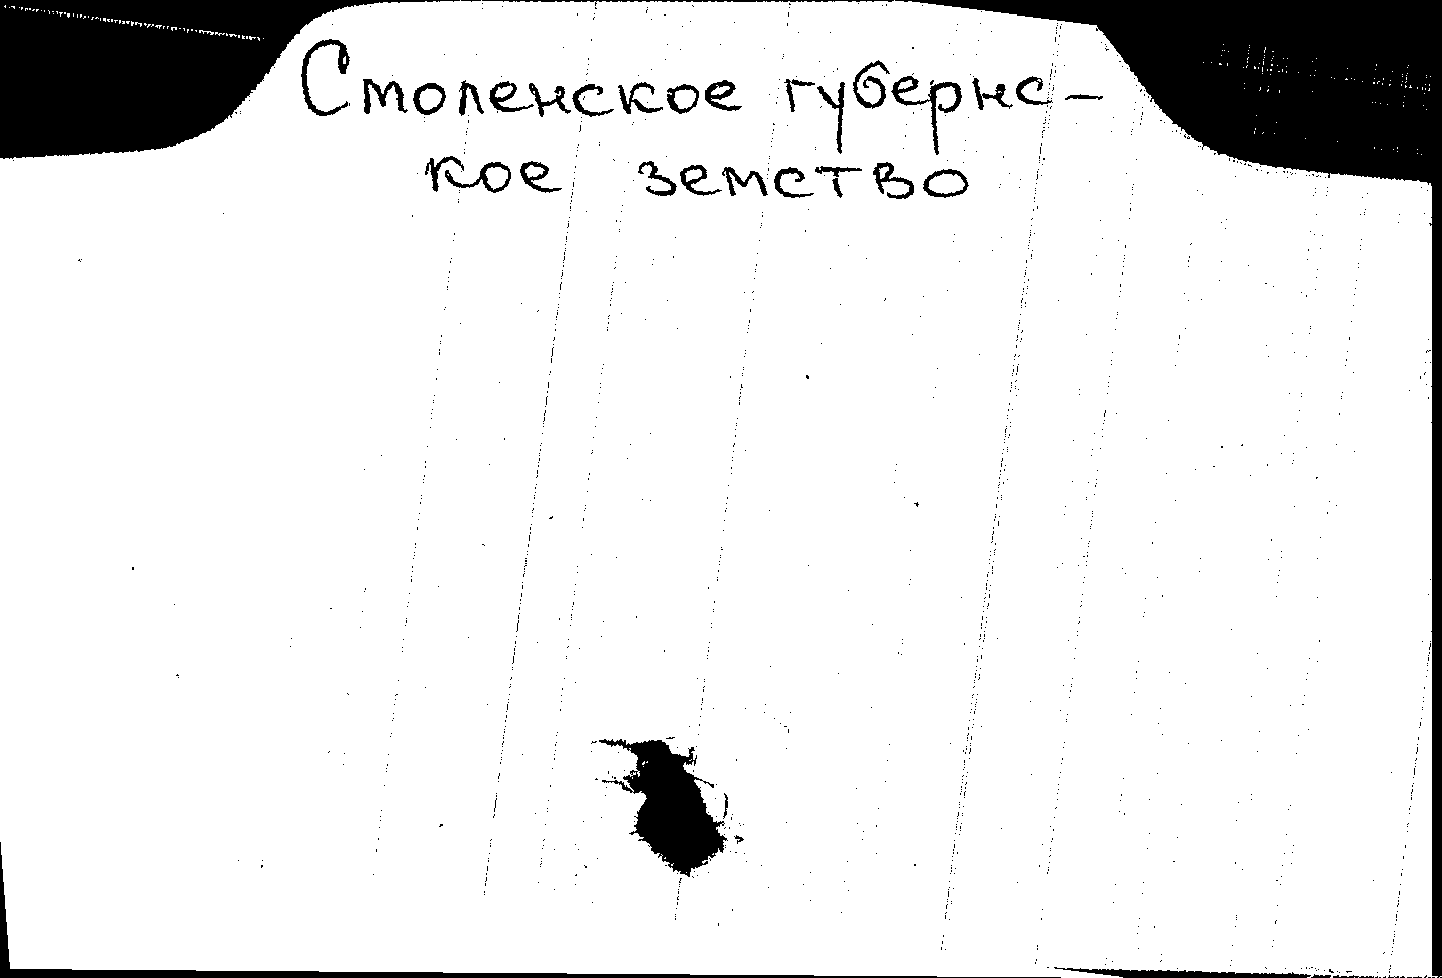 Смоленское губернс-
кое земство